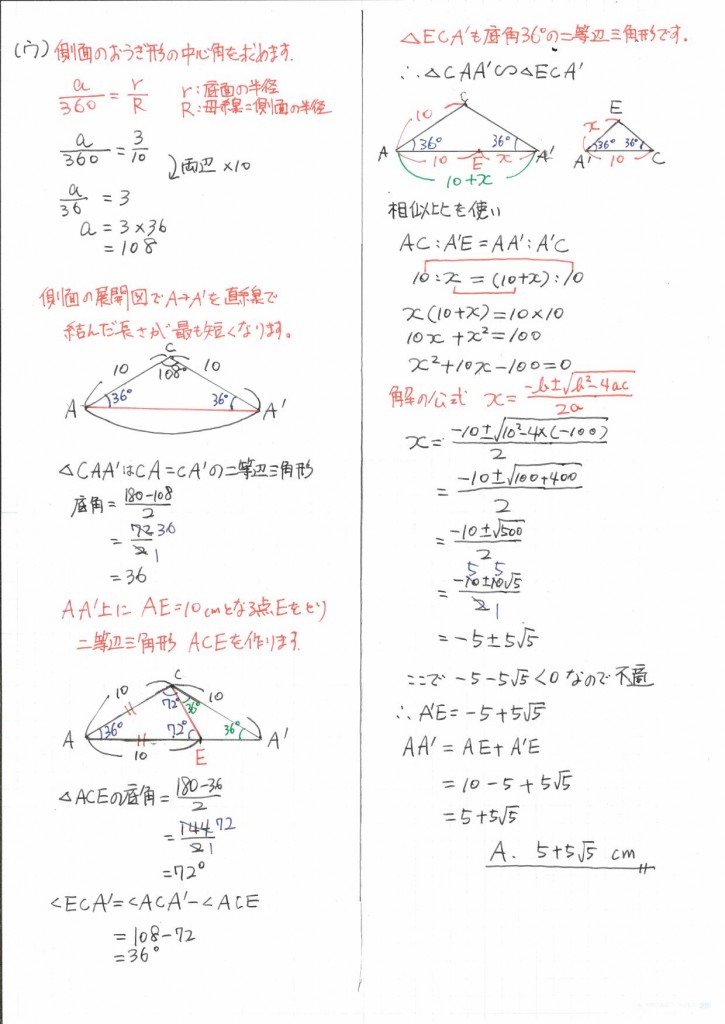 (ウ) 側面のおうぎ形の中心角を求めます.
a/360 = r/R
r:底面の半径
R:母線=側面の半径
a/360 = 3/10
両辺×10
a/36 = 3
a = 3×36
= 108
側面の展開図でA→A'を直線で
結んだ長さが最も短くなります。
C
10 108° 10
A 36° 36° A'
△CAA'はCA=CA'の二等辺三角形
底角 = (180-108)/2
= 72/2 36 1
= 36
AA'上に AE=10cmとなる点Eをとり
二等辺三角形 ACEを作ります.
C
10 72° 36° 10
A 36° 72° 36° A'
10 E
△ACEの底角 = (180-36)/2
= 144/2 72 1
= 72°
∠ECA'=∠ACA'-∠ACE
= 108-72
= 36°
△ECA'も底角36°の二等辺三角形です.
∴△CAA'∽△ECA'
C
10
A 36° 36° A'
10 E x
10+x
E
x
36° 36°
A' 10 C
相似比を使い
AC:A'E=AA':A'C
10:x = (10+x):10
x(10+x)=10×10
10x+x²=100
x²+10x-100=0
解の公式 x = (-b±√(b²-4ac))/2a
x = (-10±√(10²-4×(-100)))/2
= (-10±√(100+400))/2
= (-10±√500)/2
= (-10±10√5)/2 5 5 1
= -5±5√5
ここで -5-5√5<0 なので不適
∴A'E=-5+5√5
AA' = AE+A'E
= 10-5+5√5
= 5+5√5
A. 5+5√5 cm